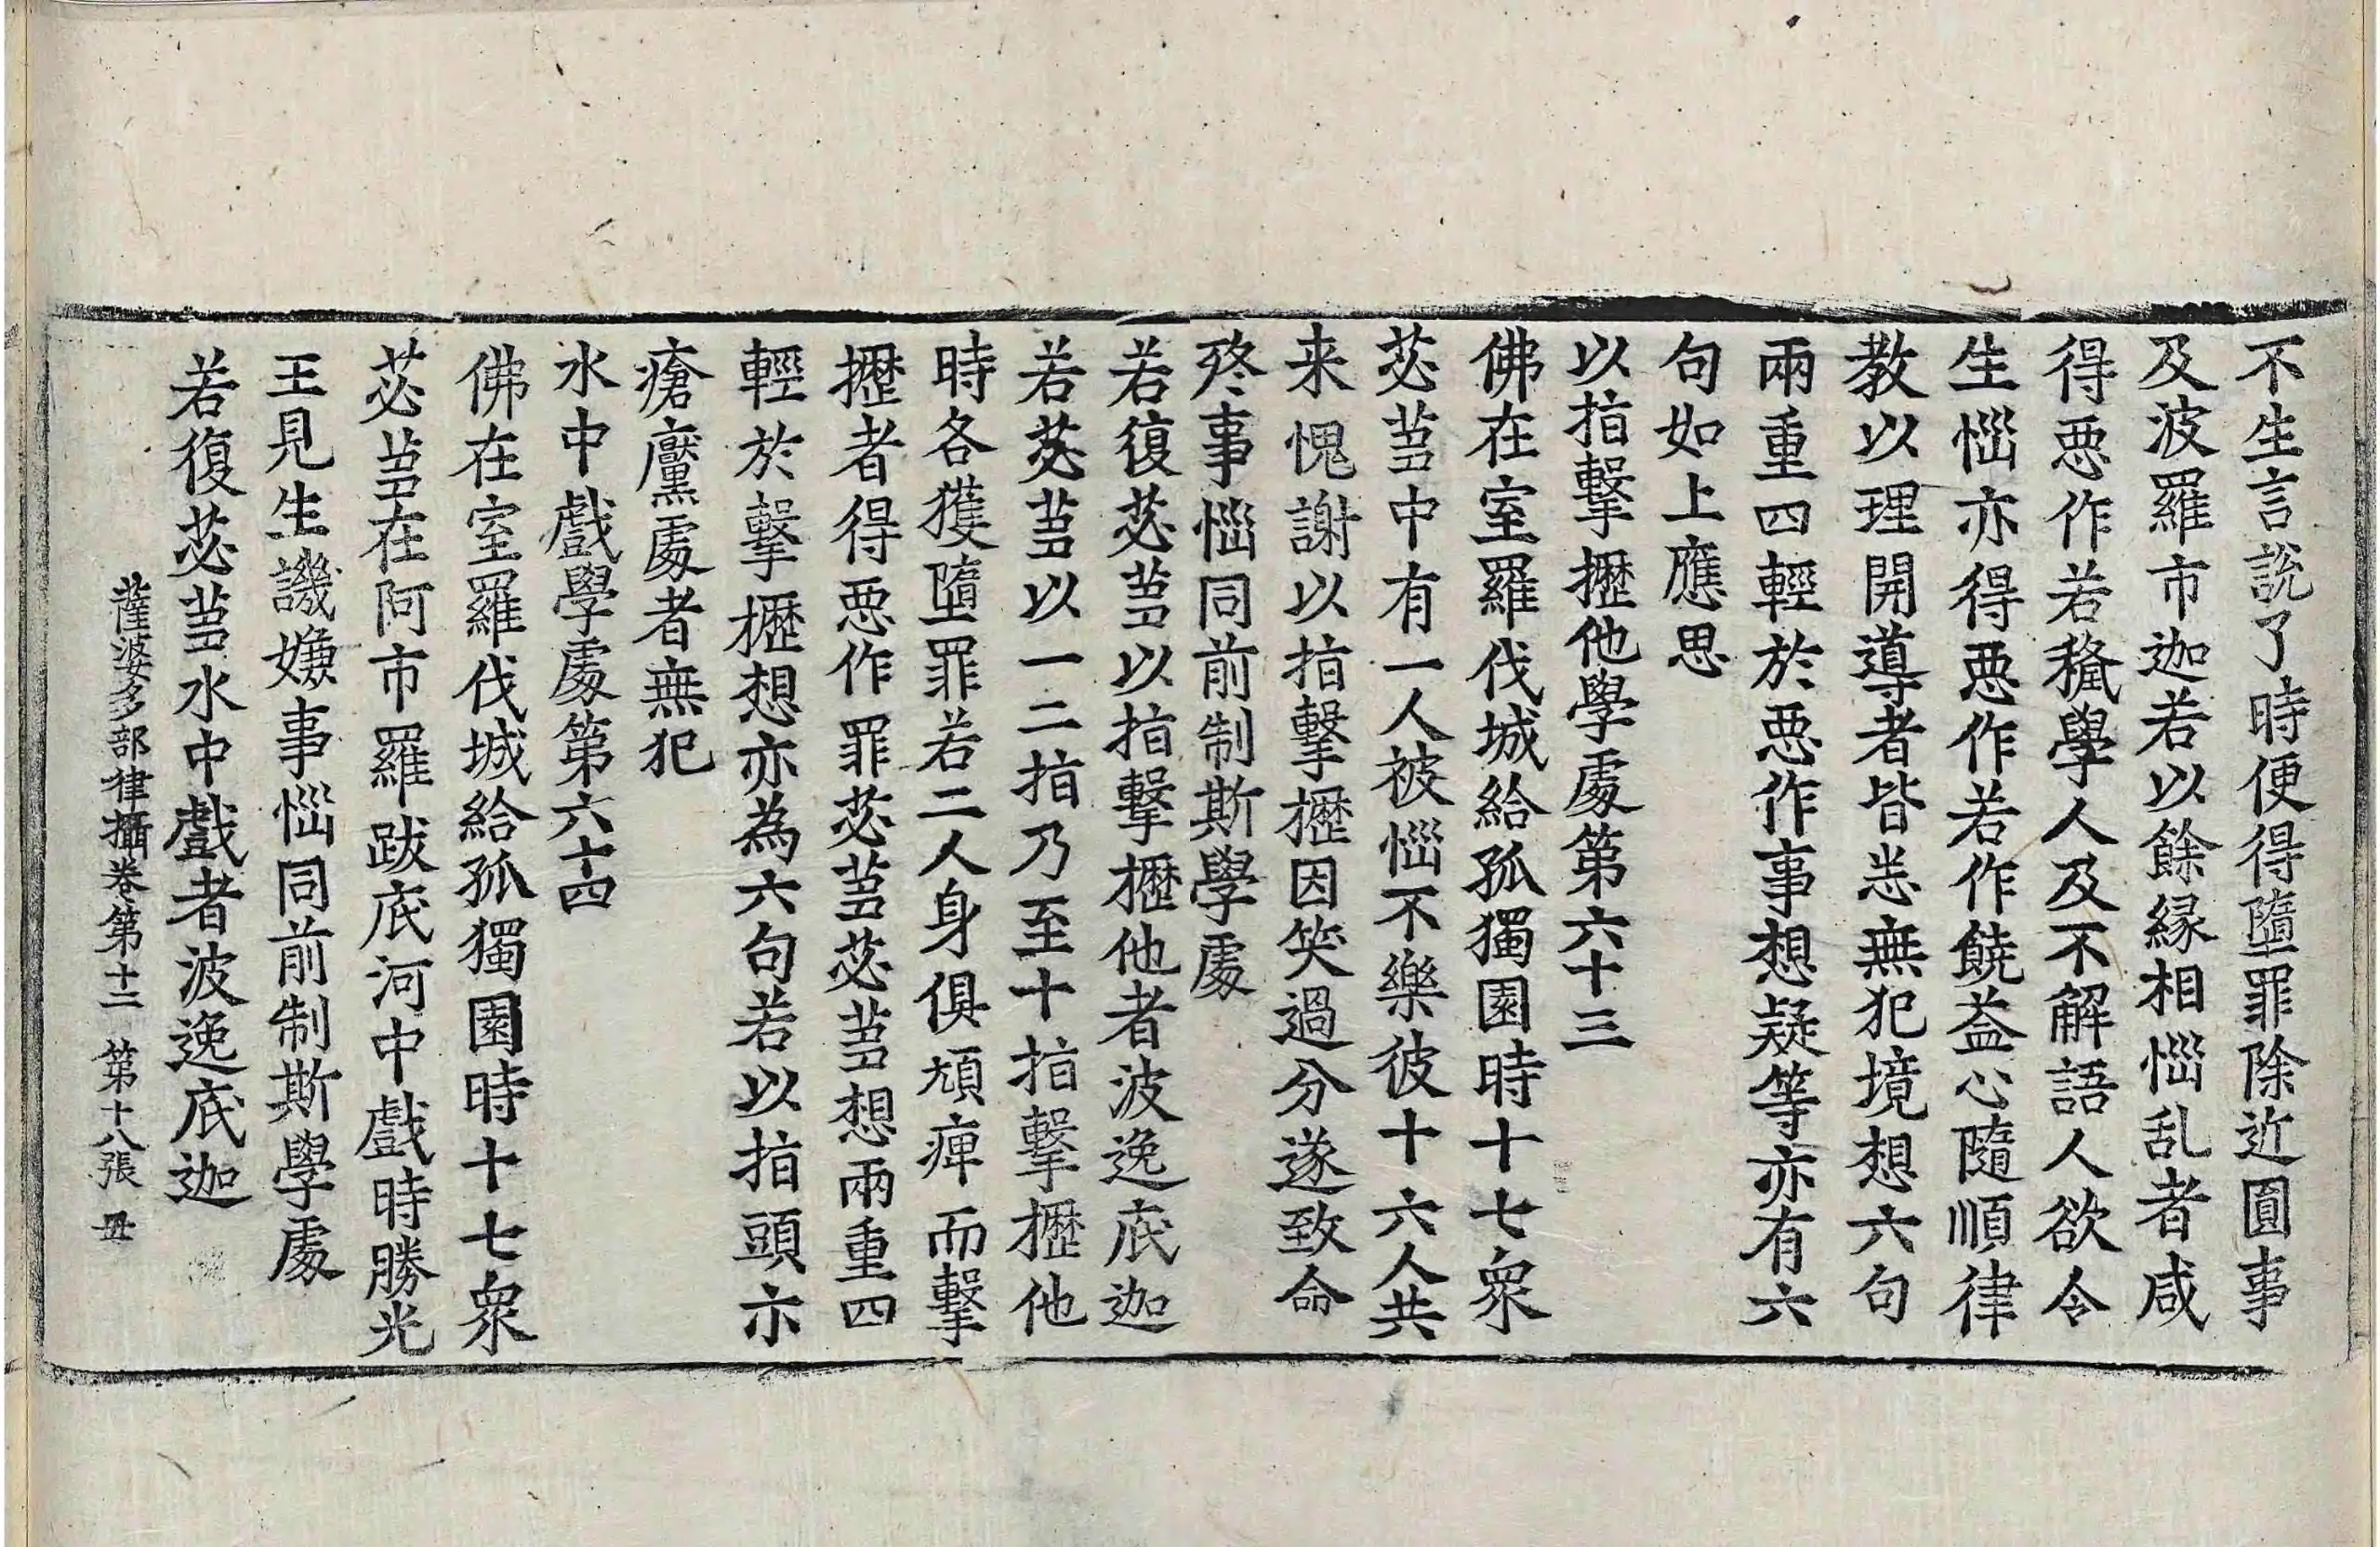 不生言說了時便得墮罪除近圓事
及波羅市迦若以餘緣相惱乱者咸
得惡作若穢學人及不解語人欲令
生惱亦得惡作若作饒益心隨順律
教以理開導者皆悉無犯境想六句
兩重四輕於惡作事想疑等亦有六
句如上應思
以指擊攊他學處第六十三
佛在室羅伐城給孤獨園時十七衆
苾芻中有一人被惱不樂彼十六人共
来愧謝以指擊攊因笑過分遂致命
終事惱同前制斯學處
若復苾芻以指擊攊他者波逸底迦
若苾芻以一二指乃至十指擊攊他
時各獲墮罪若二人身俱頑痺而擊
攊者得惡作罪苾芻苾芻想兩重四
輕於擊攊想亦為六句若以指頭示
瘡黶處者無犯
水中戲學處第六十四
佛在室羅伐城給孤獨園時十七衆
苾芻在阿市羅跋底河中戲時勝光
王見生譏嫌事惱同前制斯學處
若復苾芻水中戲者波逸底迦
薩婆多部律攝卷第十二 第十八張 丑